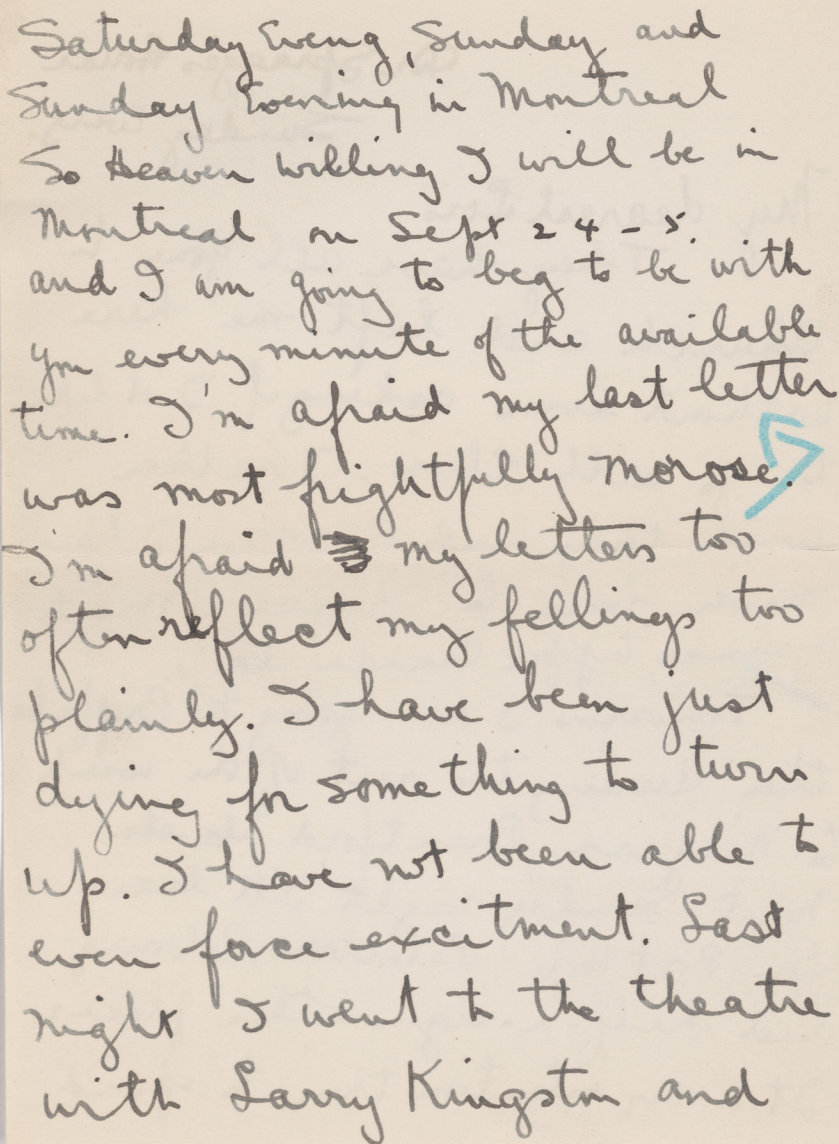 Saturday Eveng, Sunday and
Sunday Evening in Montreal
So Heaven willing I will be in
Montreal on Sept 24-5.
and I am going to beg to be with
you every minute of the available
time. I'm afraid my last letter
was most frightfully morose.
I'm afraid my letters too
often reflect my fellings too
plainly. I have been just
dying for something to turn
up. I have not been able to
even force excitment. Last
night I went to the theatre
with Larry Kingston and